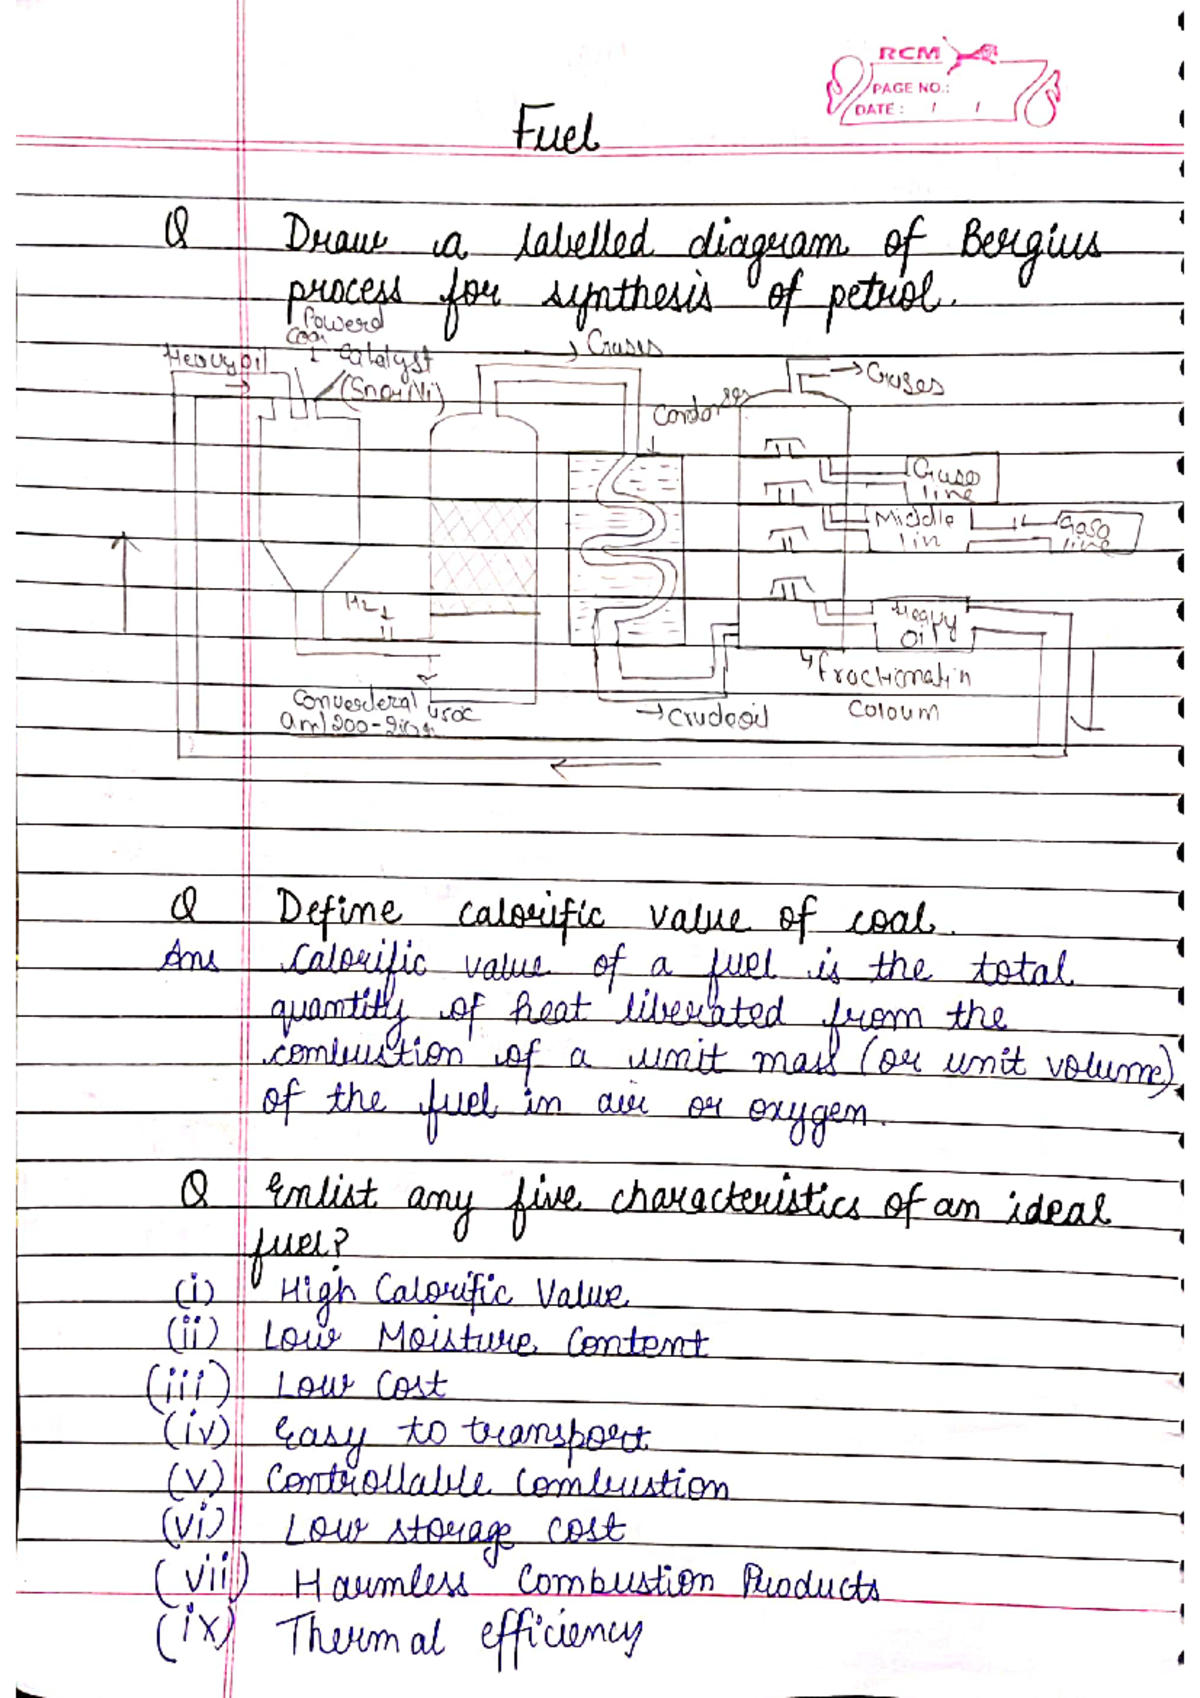 RCM
PAGE NO.:
DATE: / /
Fuel
Q Draw a labelled diagram of Bergius
process for synthesis of petrol.
Powerd
Coal
Heavy oil
Catalyst
(Sn or Ni)
Gases
Gases
Condenser
Gaso
line
Middle
lin
Gaso
line
H2
Heavy
Oil
fractionatin
Coloum
450c
200-
Crudeoil
Q Define calorific value of coal.
Ans Calorific value of a fuel is the total
quantity of heat liberated from the
combustion of a unit mass (or unit volume)
of the fuel in air or oxygen.
Q Enlist any five characteristics of an ideal
fuel?
(i) High Calorific Value
(ii) Low Moisture Content
(iii) Low Cost
(iv) Easy to transport
(v) Controllable Combustion
(vi) Low storage cost
(vii) Harmless Combustion Products
(ix) Thermal efficiency